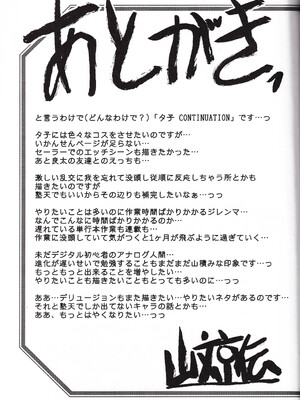 あとがき,
と言うわけで(どんなわけで?)「夕子 CONTINUATION」です…っ
夕子には色々なコスをさせたいのですが…
いかんせんページが足らない…
セーラーでのエッチシーンも描きたかった…
あと良太の友達とのえっちも…
激しい乱交に我を忘れて没頭し従順に反応しちゃう所とかも
描きたいのですが…っっっ
塾天でもいいからその辺りも補完したいなぁ…っっ
やりたいことは多いのに作業時間ばかりかかるジレンマ…
なんでこんなに時間ばかりかかるのか…
遅れている単行本作業も連載も…
作業に没頭していて気がつくと1ヶ月が飛ぶように過ぎていく…
未だデジタル初心者のアナログ人間…
進化が遅いせいで勉強することもまだまだ山積みな印象です…っ
もっともっと出来ることを増やしたい…
やりたいことも描きたいこともとっても多いのに…っっ
ああ…デリュージョンもまた描きたい…やりたいネタがあるのです…
それと塾天でしか出てないキャラの話とかも…
ああ、もっとはやくなりたい…っっ
山文京伝